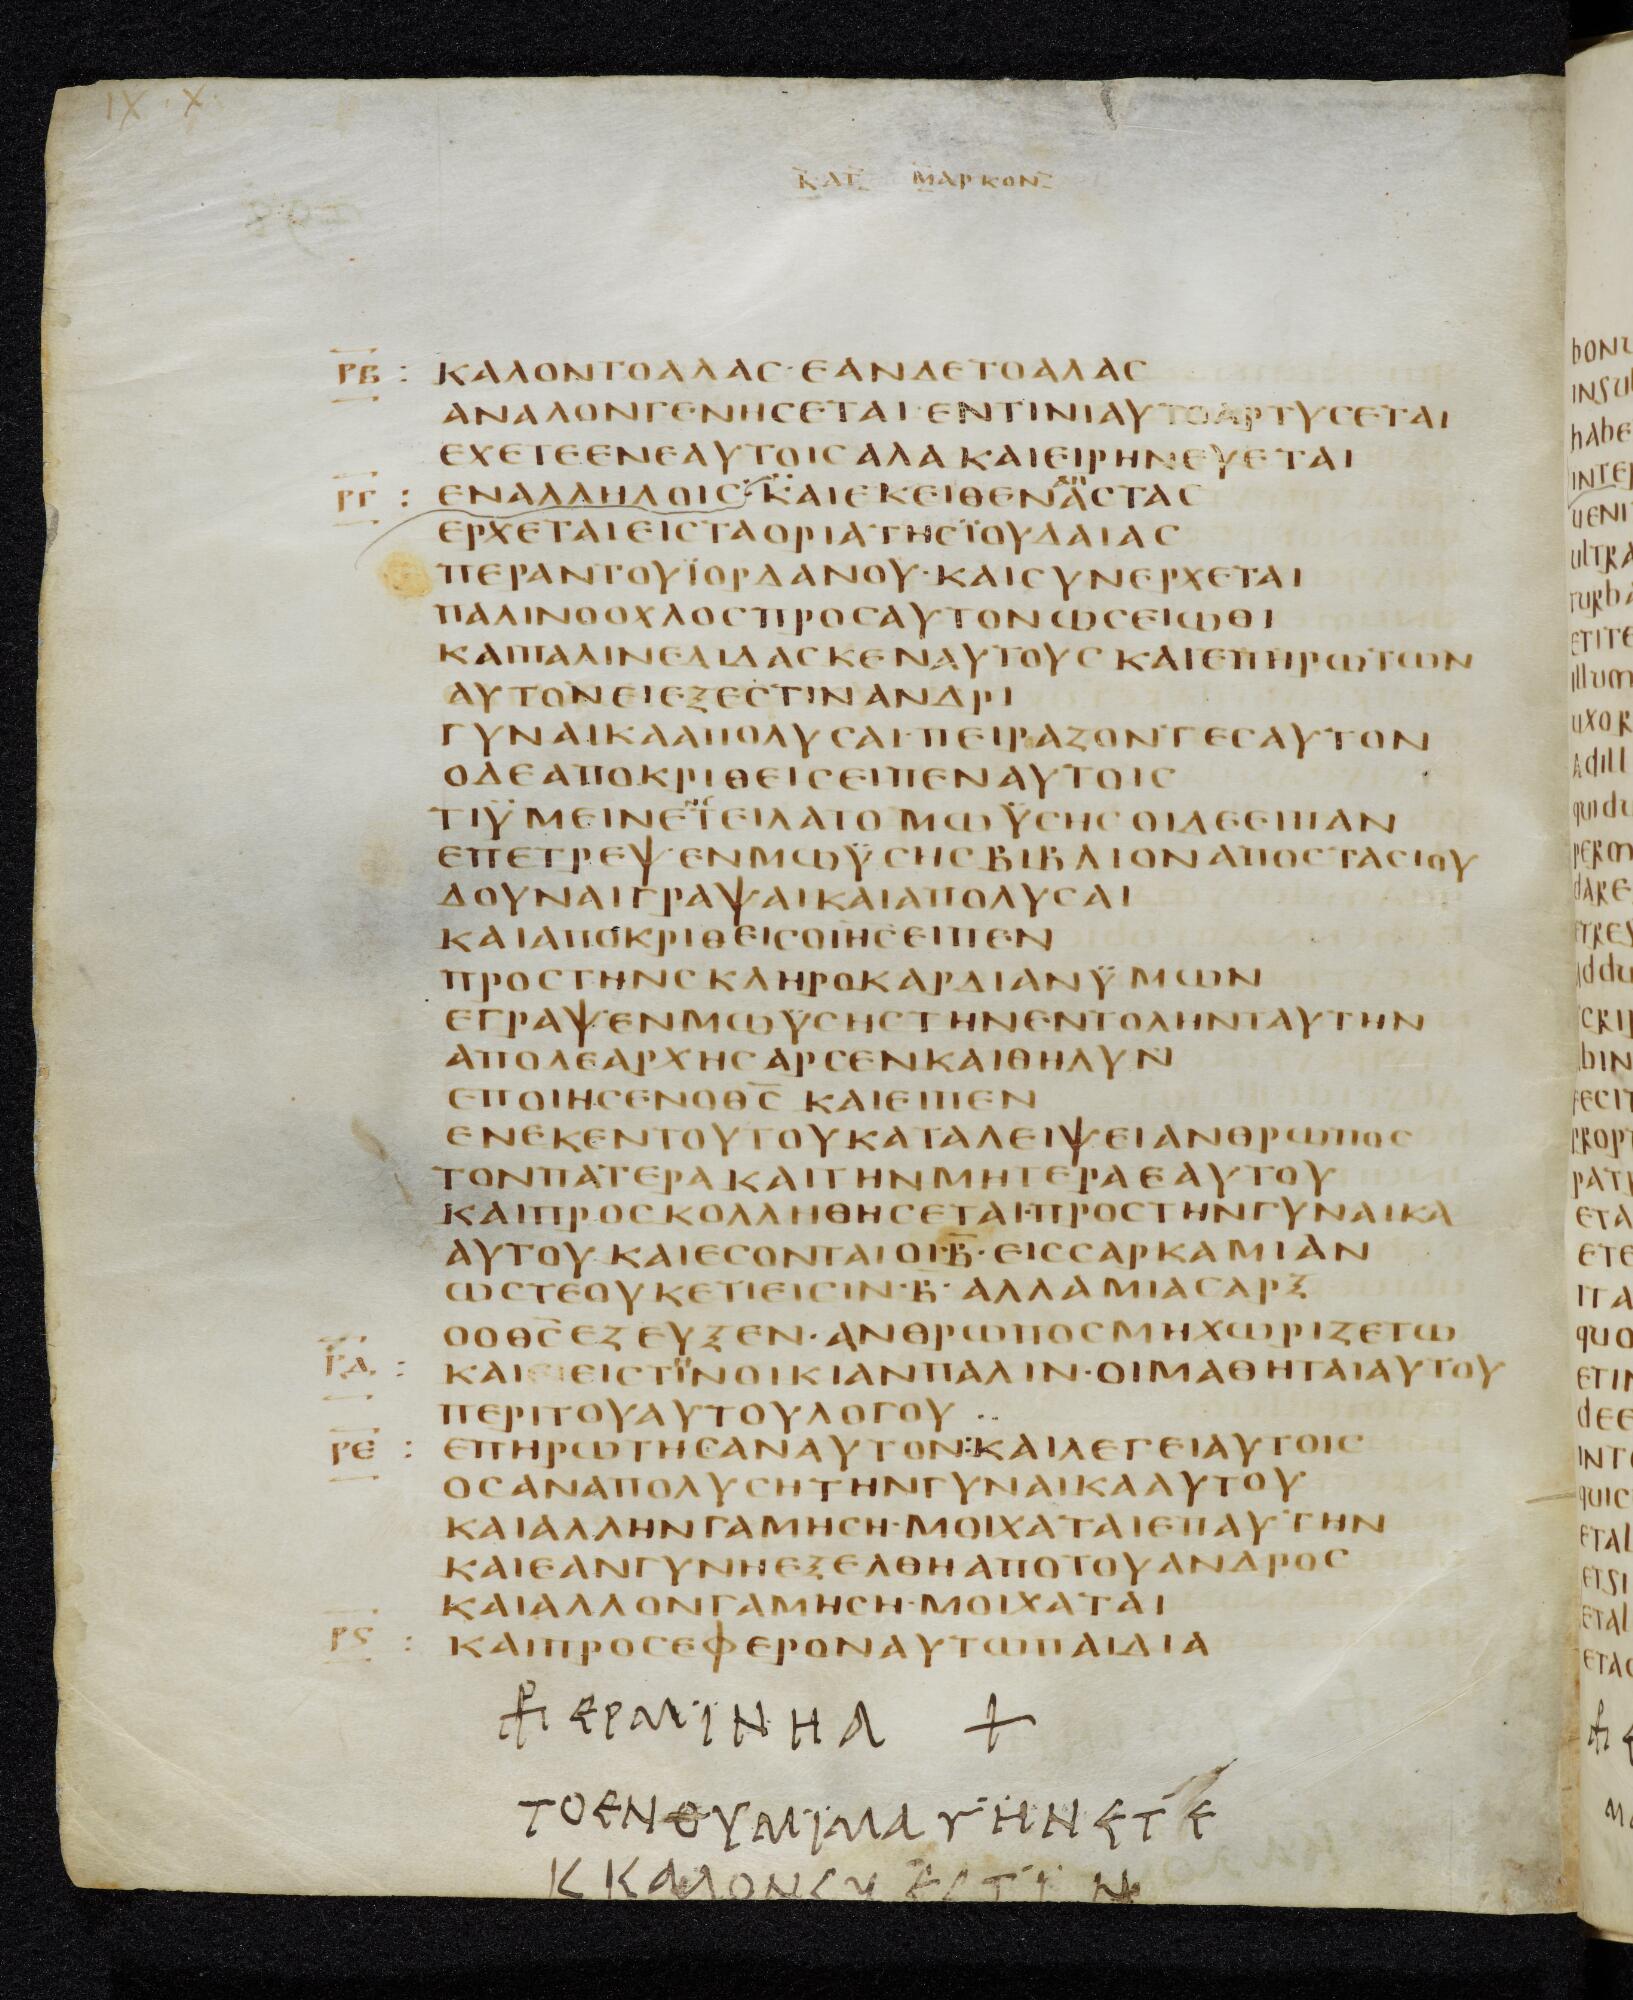 IX · X·
ΚΑΤ ΜΑΡΚΟΝ
ΡΒ : ΚΑΛΟΝΤΟΑΛΑΣ· ΕΑΝΔΕΤΟΑΛΑΣ
ΑΝΑΛΟΝΓΕΝΗΣΕΤΑΙ· ΕΝΤΙΝΙΑΥΤΟΑΡΤΥΣΕΤΑΙ
ΕΧΕΤΕΕΝΕΑΥΤΟΙΣΑΛΑ ΚΑΙΕΙΡΗΝΕΥΕΤΑΙ
ΡΓ : ΕΝΑΛΛΗΛΟΙΣ: ΚΑΙΕΚΕΙΘΕΝΑΝΑΣΤΑΣ
ΕΡΧΕΤΑΙΕΙΣΤΑΟΡΙΑΤΗΣΪΟΥΔΑΙΑΣ
ΠΕΡΑΝΤΟΥΪΟΡΔΑΝΟΥ· ΚΑΙΣΥΝΕΡΧΕΤΑΙ
ΠΑΛΙΝΟΟΧΛΟΣΠΡΟΣΑΥΤΟΝΩΣΕΙΩΘΙ
ΚΑΙΠΑΛΙΝΕΔΙΔΑΣΚΕΝΑΥΤΟΥΣ ΚΑΙΕΠΗΡΩΤΩΝ
ΑΥΤΟΝΕΙΕΞΕΣΤΙΝΑΝΔΡΙ
ΓΥΝΑΙΚΑΑΠΟΛΥΣΑΙ· ΠΕΙΡΑΖΟΝΤΕΣΑΥΤΟΝ
ΟΔΕΑΠΟΚΡΙΘΕΙΣΕΙΠΕΝΑΥΤΟΙΣ
ΤΙΫΜΕΙΝΕΝΕΤΕΙΛΑΤΟ ΜΩΫΣΗΣ ΟΙΔΕΕΙΠΑΝ
ΕΠΕΤΡΕΨΕΝΜΩΫΣΗΣΒΙΒΛΙΟΝΑΠΟΣΤΑΣΙΟΥ
ΔΟΥΝΑΙΓΡΑΨΑΙΚΑΙΑΠΟΛΥΣΑΙ
ΚΑΙΑΠΟΚΡΙΘΕΙΣΟΙΗΣΕΙΠΕΝ
ΠΡΟΣΤΗΝΣΚΛΗΡΟΚΑΡΔΙΑΝΫΜΩΝ
ΕΓΡΑΨΕΝΜΩΫΣΗΣΤΗΝΕΝΤΟΛΗΝΤΑΥΤΗΝ
ΑΠΟΔΕΑΡΧΗΣ ΑΡΣΕΝΚΑΙΘΗΛΥΝ
ΕΠΟΙΗΣΕΝΟΘΣ ΚΑΙΕΙΠΕΝ
ΕΝΕΚΕΝΤΟΥΤΟΥΚΑΤΑΛΕΙΨΕΙΑΝΘΡΩΠΟΣ
ΤΟΝΠΑΤΕΡΑ ΚΑΙΤΗΝΜΗΤΕΡΑΕΑΥΤΟΥ
ΚΑΙΠΡΟΣΚΟΛΛΗΘΗΣΕΤΑΙ·ΠΡΟΣΤΗΝΓΥΝΑΙΚΑ
ΑΥΤΟΥ ΚΑΙΕΣΟΝΤΑΙΟΙ·Β· ΕΙΣΣΑΡΚΑΜΙΑΝ
ΩΣΤΕΟΥΚΕΤΙΕΙΣΙΝ·Β· ΑΛΛΑΜΙΑΣΑΡΞ
ΟΟΘΣΕΖΕΥΞΕΝ· ΑΝΘΡΩΠΟΣΜΗΧΩΡΙΖΕΤΩ
ΡΔ : ΚΑΙ ΕΙΣΤΗΝΟΙΚΙΑΝΠΑΛΙΝ· ΟΙΜΑΘΗΤΑΙΑΥΤΟΥ
ΠΕΡΙΤΟΥΑΥΤΟΥΛΟΓΟΥ
ΡΕ : ΕΠΗΡΩΤΗΣΑΝΑΥΤΟΝ:ΚΑΙΛΕΓΕΙΑΥΤΟΙΣ
ΟΣΑΝΑΠΟΛΥΣΗΤΗΝΓΥΝΑΙΚΑΑΥΤΟΥ
ΚΑΙΑΛΛΗΝΓΑΜΗΣΗ· ΜΟΙΧΑΤΑΙΕΠΑΥΤΗΝ
ΚΑΙΕΑΝΓΥΝΗΕΞΕΛΘΗΑΠΟΤΟΥΑΝΔΡΟΣ
ΚΑΙΑΛΛΟΝΓΑΜΗΣΗ· ΜΟΙΧΑΤΑΙ
ΡϚ : ΚΑΙΠΡΟΣΕΦΕΡΟΝΑΥΤΩΠΑΙΔΙΑ
ΕΡΜΙΝΗΑ +
ΤΟΕΝΘΥΜΙΜΑΥΗΝΕΤΕ
Κ ΚΑΛΟΝ ΕΣΤΙΝ